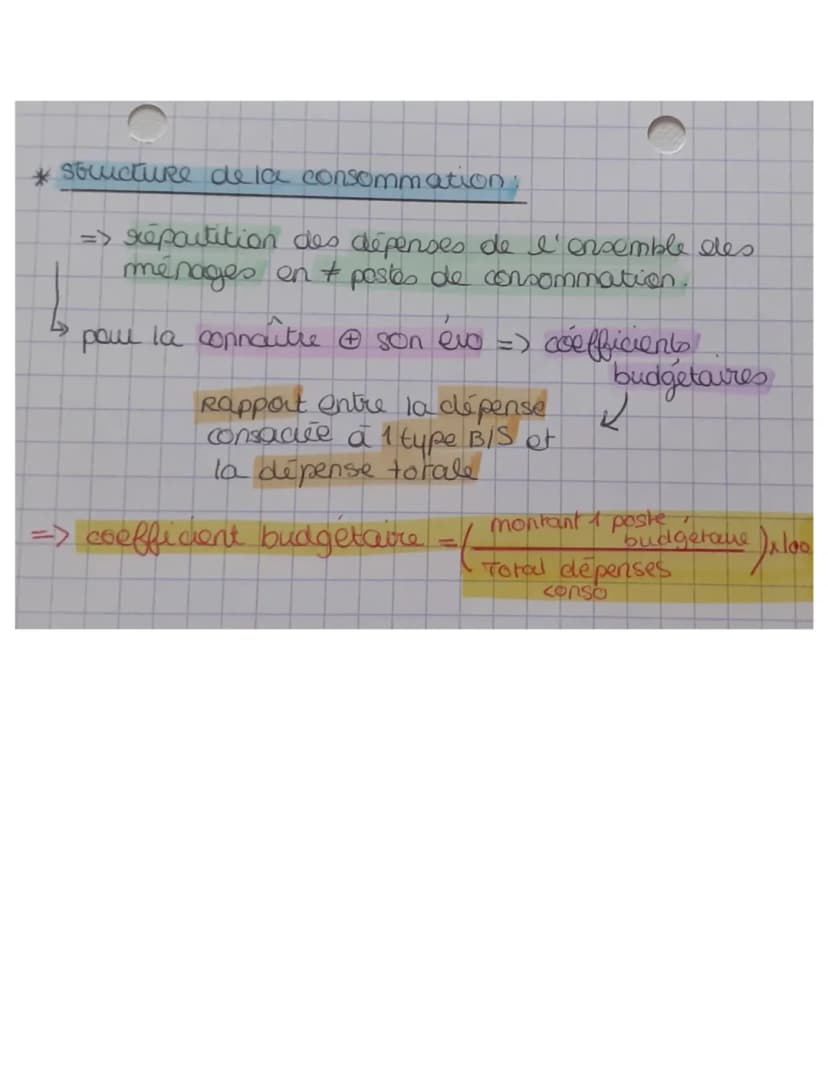 * structure de la consommation :
=> répartition des dépenses de l'ensemble des
ménages en ≠ postes de consommation.
↳ pour la connaître ⊕ son évo => coefficients
budgétaires
↙
Rapport entre la dépense
consacrée à 1 type B/S et
la dépense totale
=> coefficient budgétaire = (montant 1 poste
budgétaire
Total dépenses
conso) x100